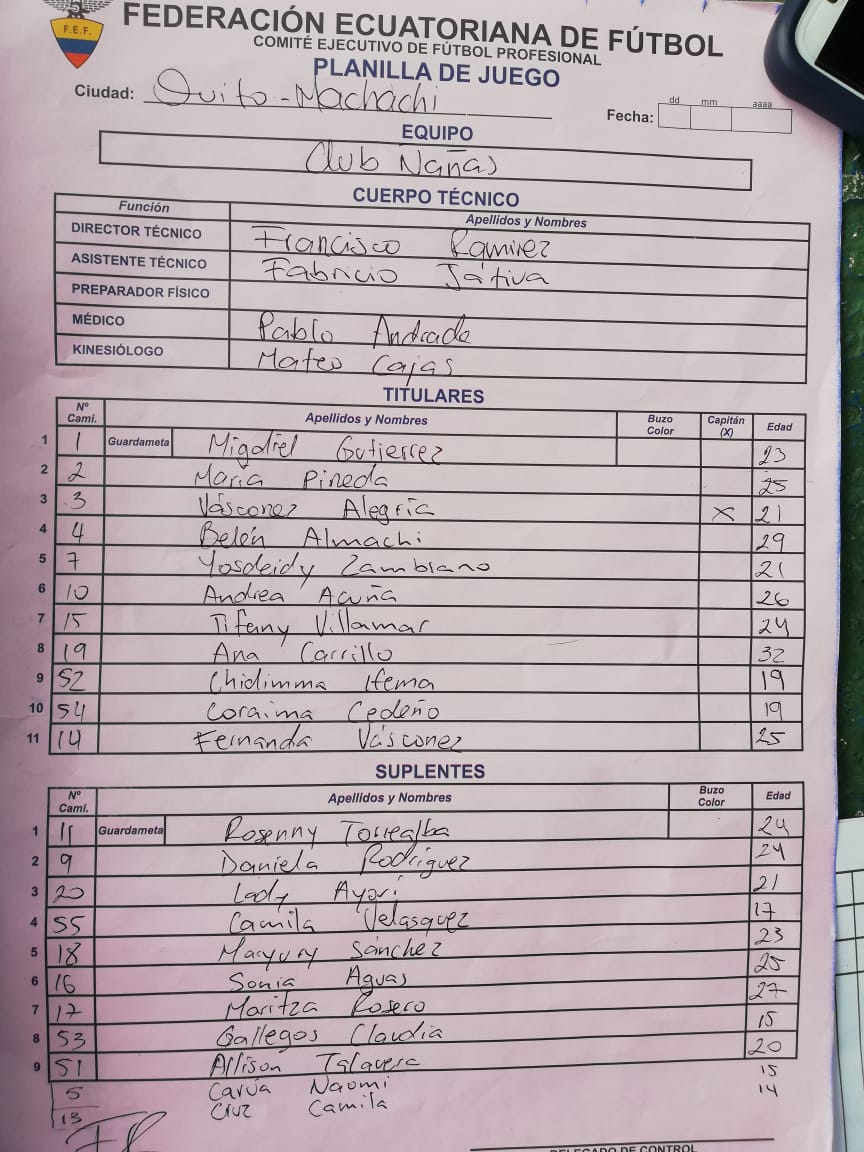 F.E.F.
FEDERACIÓN ECUATORIANA DE FÚTBOL
COMITÉ EJECUTIVO DE FÚTBOL PROFESIONAL
PLANILLA DE JUEGO
Ciudad: Quito - Machachi
dd mm aaaa
Fecha:
EQUIPO
Club Ñañas
CUERPO TÉCNICO
Función Apellidos y Nombres
DIRECTOR TÉCNICO Francisco Ramirez
ASISTENTE TÉCNICO Fabricio Játiva
PREPARADOR FÍSICO
MÉDICO Pablo Andrade
KINESIÓLOGO Mateo Cajas
TITULARES
Nº Cami. Apellidos y Nombres Buzo Color Capitán (X) Edad
1 1 Guardameta Migdliel Gutierrez 23
2 2 María Pineda 25
3 3 Vásconez Alegría X 21
4 4 Belén Almachi 29
5 7 Yosdeidy Zambrano 21
6 10 Andrea Acuña 26
7 15 Tifany Villamar 24
8 19 Ana Carrillo 32
9 52 Chidimma Ifema 19
10 54 Coraima Cedeño 19
11 14 Fernanda Vásconez 25
SUPLENTES
Nº Cami. Apellidos y Nombres Buzo Color Edad
1 11 Guardameta Rosenny Torrealba 24
2 9 Daniela Rodríguez 24
3 20 Lady Ayoví 21
4 55 Camila Velasquez 17
5 18 Maryury Sánchez 23
6 16 Sonia Aguas 25
7 17 Maritza Rosero 27
8 53 Gallegos Claudia 15
9 51 Allison Talavera 20
5 Carúa Naomi 15
13 Cruz Camila 14
DELEGADO DE CONTROL